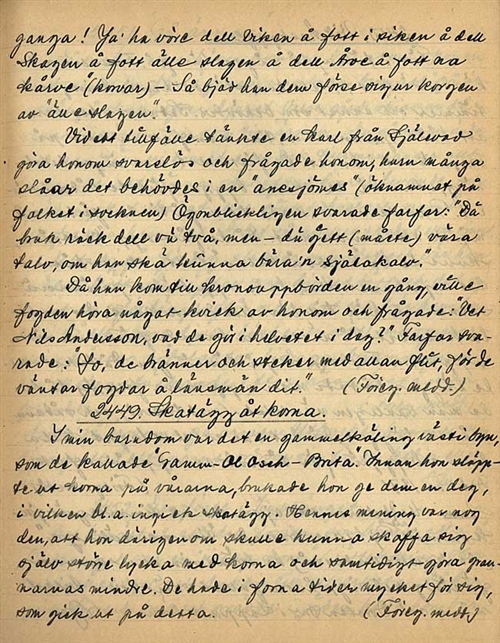 ganga! Ja' ha vôre dell Viken å fått i siken å dell
Skagen å fått älle slagen å dell Åvoe å fått na
skarve" (korvar) – Så bjöd han dem förse sig ur korgen
av "älle slagen".
Vid ett tillfälle tänkte en karl från Själevad
göra honom svarslös och frågade honom, huru många
slåar det behövdes i en "anesjömes" (öknamnet på
folket i socknen) Ögonblickligen svarade farfar: "Då
bruk räck dell vä två, men – dä gett (måste) vära
talv, om han skä kunna bära'n Själakalv."
Då han kom till kronouppbörden en gång, ville
fogden höra något kvick av honom och frågade: "Vet
Nils Andersson, vad de gör i helvetet i dag?" Farfar sva-
rade: "Jo, de bränner och steker med allan flit, för de
väntar fogdar å länsmän dit." (Föreg. medd.)
2449. Skatägg åt korna.
I min barndom var det en gammelkäling västi byn,
som de kallade "Gamm-Ol Osch-Brita". Innan hon släpp-
te ut korna på vårarna, brukade hon ge dem en deg,
i vilken bl.a. ingick skatägg. Hennes mening var nog
den, att hon därigenom skulle kunna skaffa sig
själv större lycka med korna och samtidigt göra gran-
narnas mindre. De hade i forna tider mycket för sig,
som gick ut på detta. (Föreg. medd.)